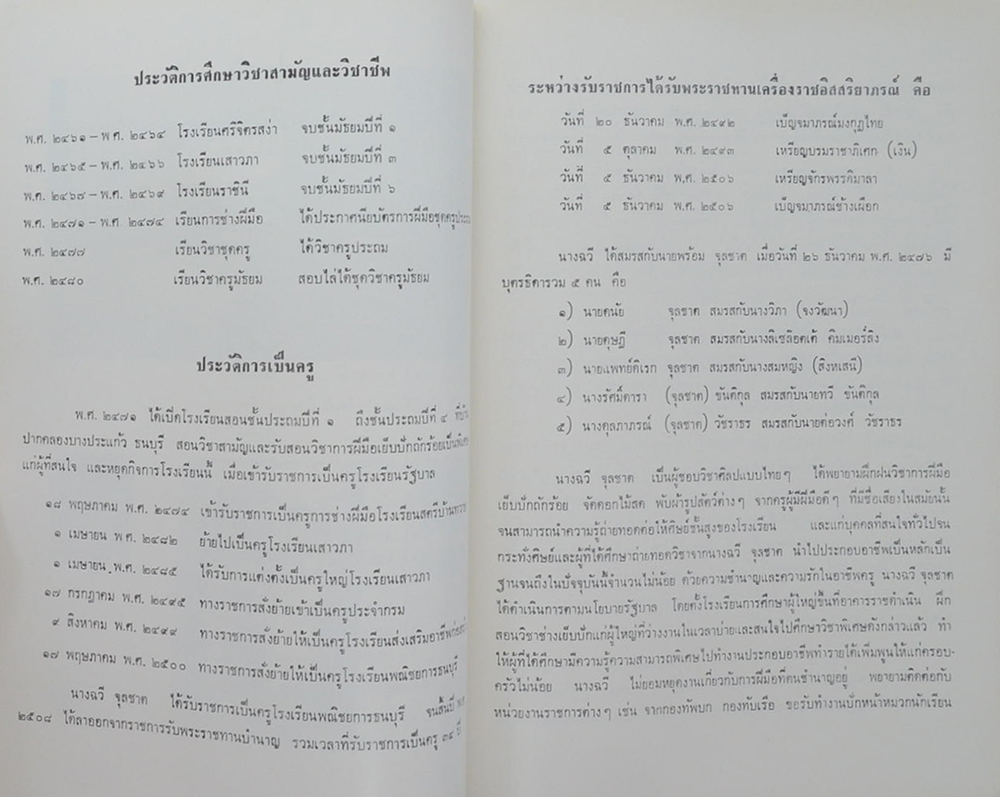 ประวัติการศึกษาวิชาสามัญและวิชาชีพ
พ.ศ. ๒๔๖๑ – พ.ศ. ๒๔๖๔ โรงเรียนศรีจิตรสง่า จบชั้นมัธยมปีที่ ๑
พ.ศ. ๒๔๖๕ – พ.ศ. ๒๔๖๖ โรงเรียนเสาวภา จบชั้นมัธยมปีที่ ๓
พ.ศ. ๒๔๖๗ – พ.ศ. ๒๔๖๙ โรงเรียนราชินี จบชั้นมัธยมปีที่ ๖
พ.ศ. ๒๔๗๑ – พ.ศ. ๒๔๗๔ เรียนการช่างฝีมือ ได้ประกาศนียบัตรการฝีมือชุดครูประถม
พ.ศ. ๒๔๗๗ เรียนวิชาชุดครู ได้วิชาครูประถม
พ.ศ. ๒๔๘๐ เรียนวิชาครูมัธยม สอบไล่ได้ชุดวิชาครูมัธยม
ประวัติการเป็นครู
พ.ศ. ๒๔๗๑ ได้เปิดโรงเรียนสอนชั้นประถมปีที่ ๑ ถึงชั้นประถมปีที่ ๔ ที่บ้าน
ปากคลองบางประแก้ว ธนบุรี สอนวิชาสามัญและรับสอนวิชาการฝีมือเย็บปักถักร้อยเป็นพิเศษ
แก่ผู้ที่สนใจ และหยุดกิจการโรงเรียนนี้ เมื่อเข้ารับราชการเป็นครูโรงเรียนรัฐบาล
๑๘ พฤษภาคม พ.ศ. ๒๔๗๔ เข้ารับราชการเป็นครูการช่างฝีมือโรงเรียนสตรีบ้านทวาย
๑ เมษายน พ.ศ. ๒๔๘๒ ย้ายไปเป็นครูโรงเรียนเสาวภา
๑ เมษายน พ.ศ. ๒๔๘๕ ได้รับการแต่งตั้งเป็นครูใหญ่โรงเรียนเสาวภา
๑๗ กรกฎาคม พ.ศ. ๒๔๙๕ ทางราชการสั่งย้ายเข้าเป็นครูประจำกรม
๙ สิงหาคม พ.ศ. ๒๔๙๙ ทางราชการสั่งย้ายให้เป็นครูโรงเรียนส่งเสริมอาชีพ
๑๗ พฤษภาคม พ.ศ. ๒๕๐๐ ทางราชการสั่งย้ายให้เป็นครูโรงเรียนพณิชยการธนบุรี
นางฉวี จุลชาต ได้รับราชการเป็นครูโรงเรียนพณิชยการธนบุรี จนสิ้นปี พ.ศ.
๒๕๐๘ ได้ลาออกจากราชการรับพระราชทานบำนาญ รวมเวลาที่รับราชการเป็นครู ๓๔ ปี
ระหว่างรับราชการได้รับพระราชทานเครื่องราชอิสสริยาภรณ์ คือ
วันที่ ๒๐ ธันวาคม พ.ศ. ๒๔๙๒ เบ็ญจมาภรณ์มงกุฎไทย
วันที่ ๕ ตุลาคม พ.ศ. ๒๔๙๓ เหรียญบรมราชาภิเศก (เงิน)
วันที่ ๕ ธันวาคม พ.ศ. ๒๕๐๖ เหรียญจักรพรรดิมาลา
วันที่ ๕ ธันวาคม พ.ศ. ๒๕๐๖ เบ็ญจมาภรณ์ช้างเผือก
นางฉวี ได้สมรสกับนายพร้อม จุลชาต เมื่อวันที่ ๒๖ ธันวาคม พ.ศ. ๒๔๗๖ มี
บุตรธิดารวม ๕ คน คือ
๑) นายดนัย จุลชาต สมรสกับนางวิภา (จงวัฒนา)
๒) นายดุษฎี จุลชาต สมรสกับนางลิเซล๊อตเต้ คิมเมอร์ลิง
๓) นายแพทย์ดิเรก จุลชาต สมรสกับนางสมหญิง (สิงหเสนี)
๔) นางรัศมีดารา (จุลชาต) ขันติกุล สมรสกับนายทวี ขันติกุล
๕) นางดุลภาภรณ์ (จุลชาต) วัชราธร สมรสกับนายต่อวงศ์ วัชราธร
นางฉวี จุลชาต เป็นผู้ชอบวิชาศิลปแบบไทยๆ ได้พยายามฝึกฝนวิชาการฝีมือ
เย็บปักถักร้อย จัดดอกไม้สด พับผ้ารูปสัตว์ต่างๆ จากครูผู้มีฝีมือดีๆ ที่มีชื่อเสียงในสมัยนั้น
จนสามารถนำความรู้ถ่ายทอดต่อให้ศิษย์ชั้นสูงของโรงเรียน และแก่บุคคลที่สนใจทั่วไปจน
กระทั่งศิษย์และผู้ที่ได้ศึกษาถ่ายทอดวิชาจากนางฉวี จุลชาต นำไปประกอบอาชีพเป็นหลักเป็น
ฐานจนถึงในปัจจุบันนี้จำนวนไม่น้อย ด้วยความชำนาญและความรักในอาชีพครู นางฉวี จุลชาต
ได้ดำเนินการตามนโยบายรัฐบาล โดยตั้งโรงเรียนการศึกษาผู้ใหญ่ขึ้นที่อาคารราชดำเนิน ฝึก
สอนวิชาช่างเย็บปักแก่ผู้ใหญ่ที่ว่างงานในเวลาบ่ายและสนใจไปศึกษาวิชาพิเศษดังกล่าวแล้ว ทำ
ให้ผู้ที่ได้ศึกษามีความรู้ความสามารถพิเศษไปทำงานประกอบอาชีพทำรายได้เพิ่มพูนให้แก่ครอบ-
ครัวไม่น้อย นางฉวี ไม่ยอมหยุดงานเกี่ยวกับการฝีมือที่ตนชำนาญอยู่ พยายามติดต่อกับ
หน่วยงานราชการต่างๆ เช่น จากกองทัพบก กองทัพเรือ ขอรับทำงานปักหน้าหมวกนักเรียน